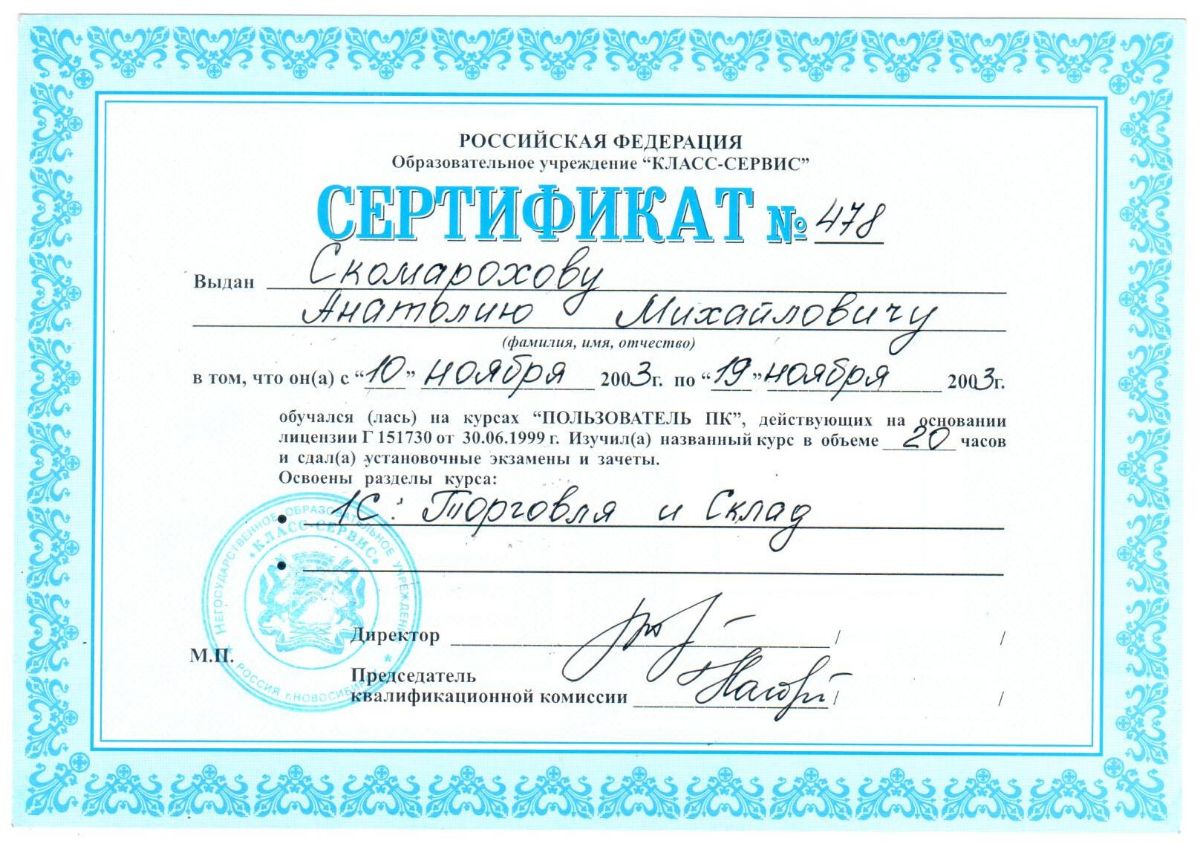 РОССИЙСКАЯ ФЕДЕРАЦИЯ
Образовательное учреждение “КЛАСС-СЕРВИС”
СЕРТИФИКАТ № 478
Выдан Скоморохову
Анатолию Михайловичу
(фамилия, имя, отчество)
в том, что он(а) с “10” ноября 2003г. по “19” ноября 2003г.
обучался (лась) на курсах “ПОЛЬЗОВАТЕЛЬ ПК”, действующих на основании
лицензии Г 151730 от 30.06.1999 г. Изучил(а) названный курс в объеме 20 часов
и сдал(а) установочные экзамены и зачеты.
Освоены разделы курса:
• 1С: Торговля и Склад
•
НЕГОСУДАРСТВЕННОЕ ОБРАЗОВАТЕЛЬНОЕ УЧРЕЖДЕНИЕ
«КЛАСС-СЕРВИС»
РОССИЯ г.НОВОСИБИРСК
Директор / /
М.П.
Председатель
квалификационной комиссии / /